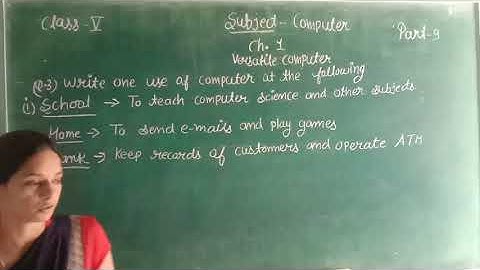 Class - V
Subject - Computer
Part-9
Ch. 1
Versatile Computer
(Q-3) Write one use of computer at the following
i) School → To teach computer science and other subjects.
Home → To send e-mails and play games
→ Keep records of customers and operate ATM